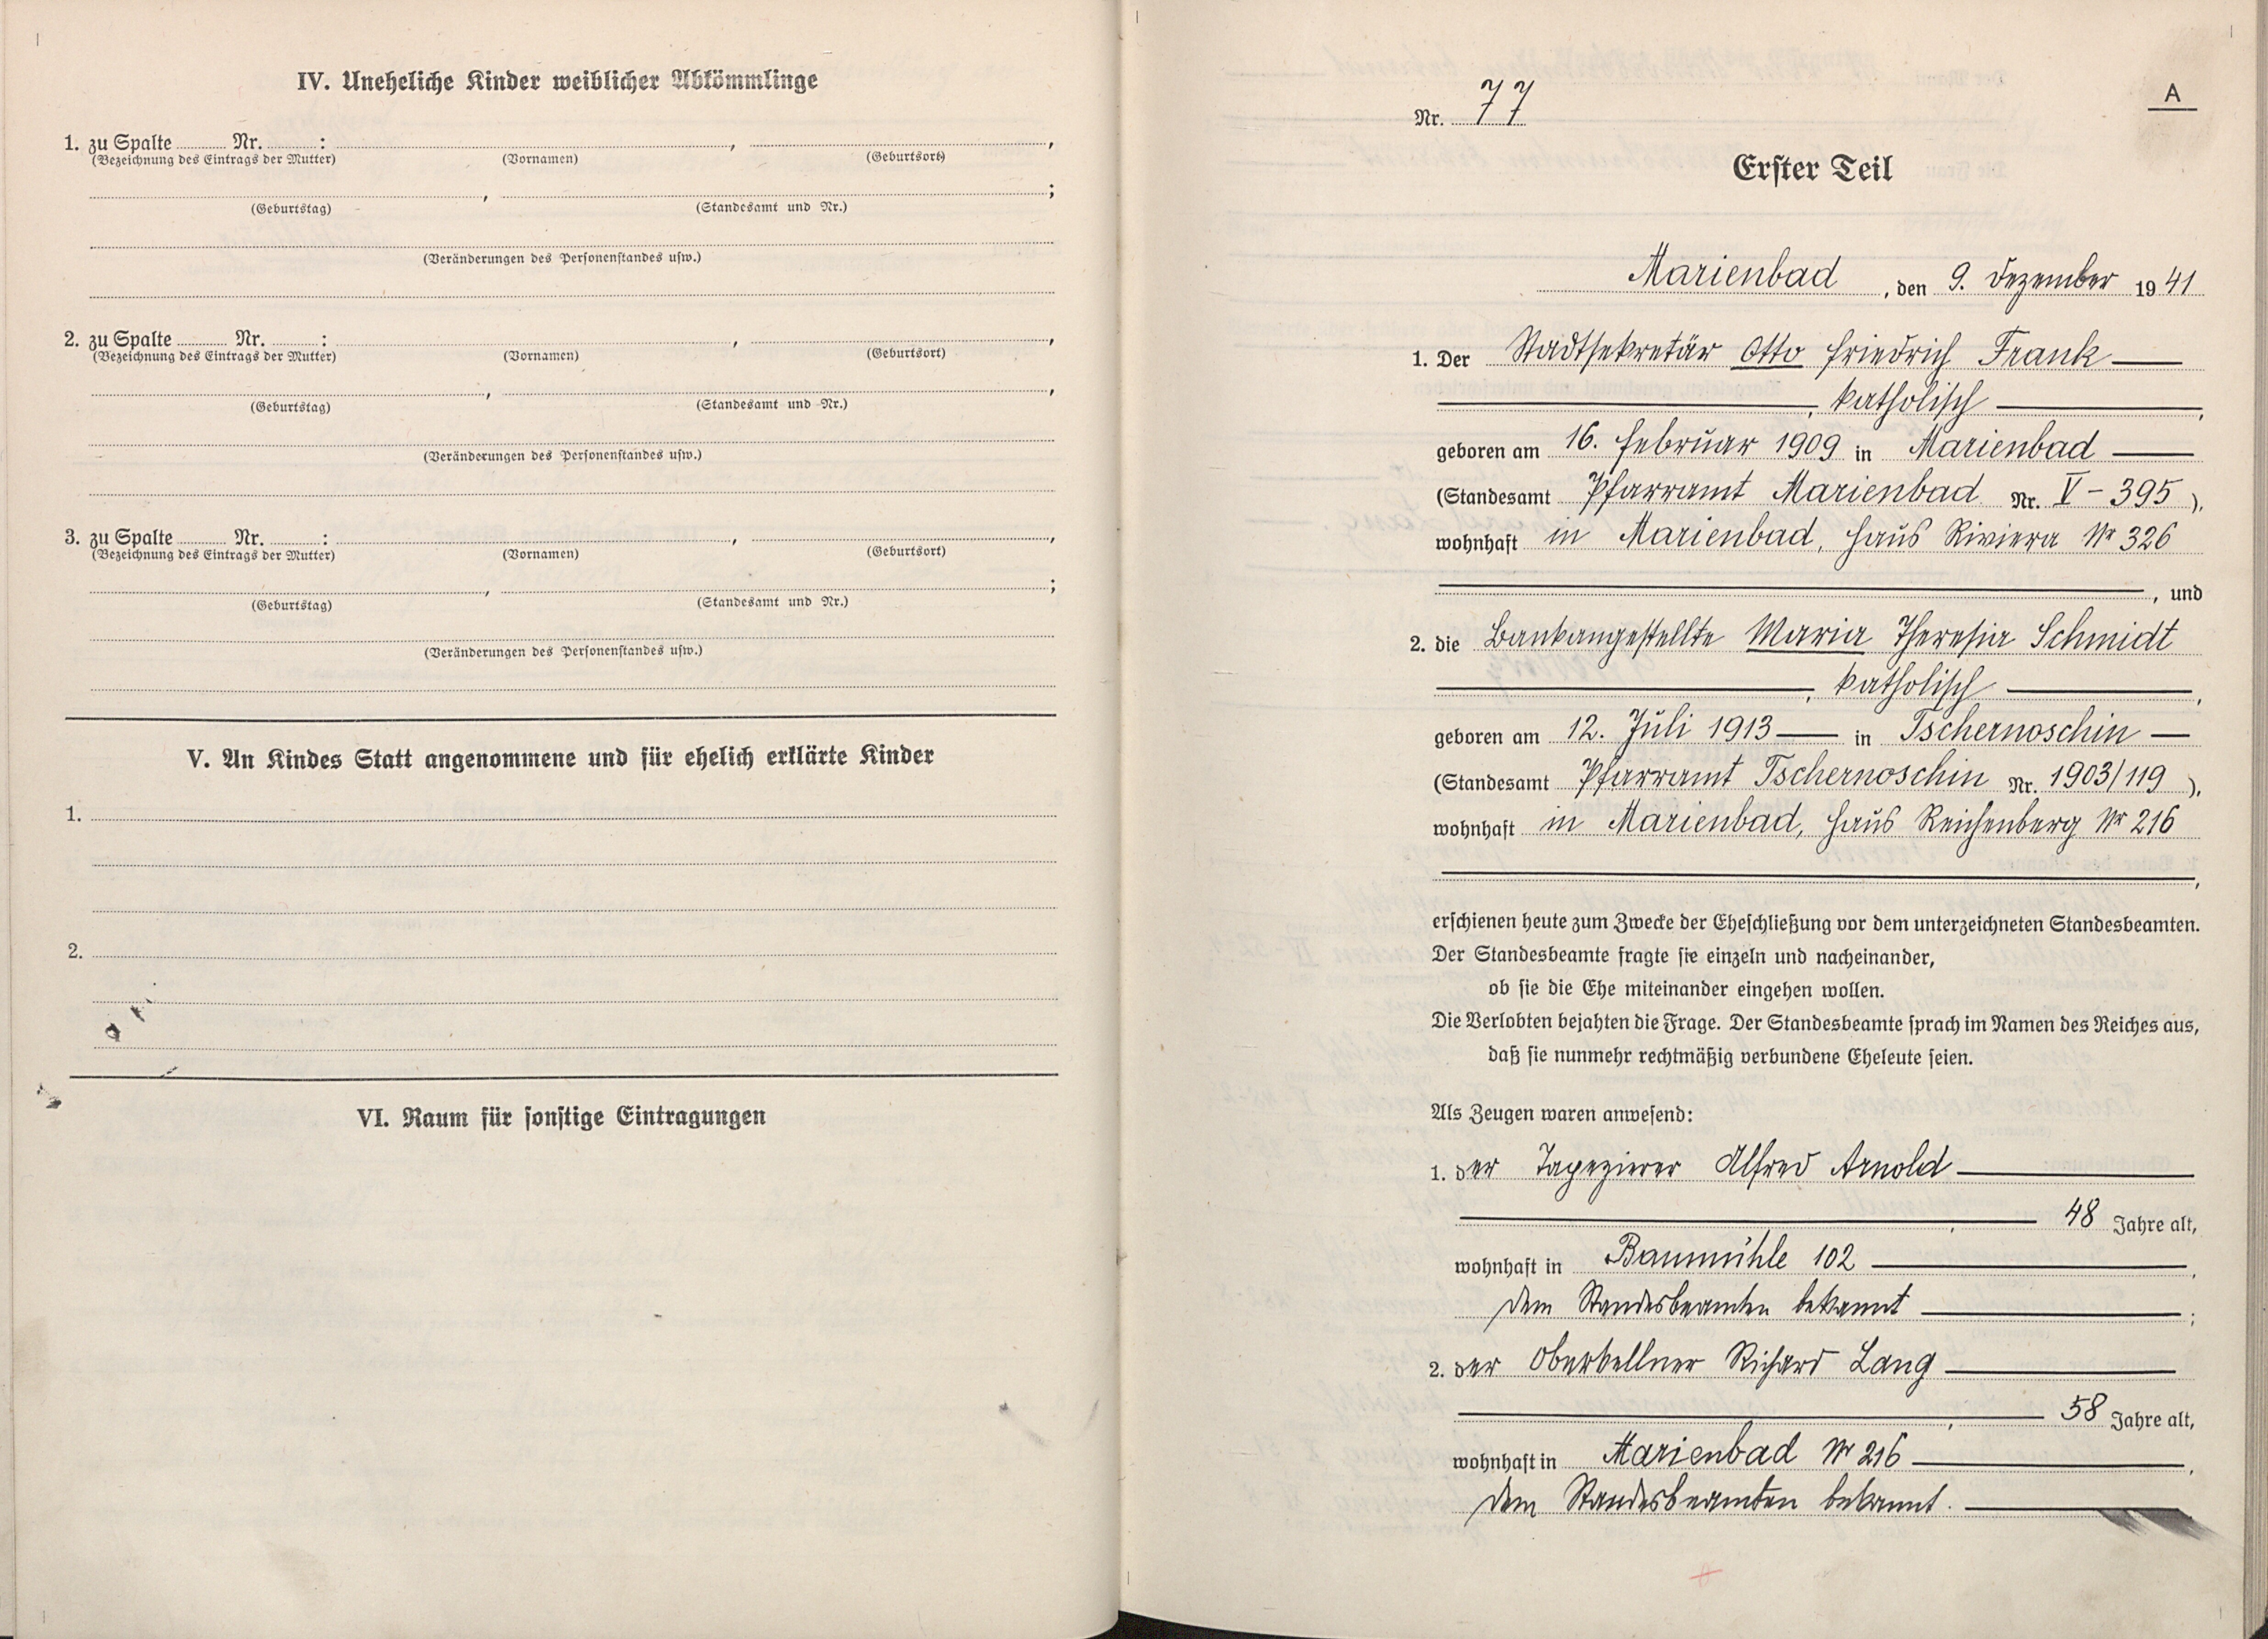 IV. Uneheliche Kinder weiblicher Abkömmlinge
1. zu Spalte ........ Nr. ........ : ........ , ........ ,
(Bezeichnung des Eintrags der Mutter) (Vornamen) (Geburtsort)
........ , ........ ;
(Geburtstag) (Standesamt und Nr.)
(Veränderungen des Personenstandes usw.)
2. zu Spalte ........ Nr. ........ : ........ , ........ ,
(Bezeichnung des Eintrags der Mutter) (Vornamen) (Geburtsort)
........ , ........ ,
(Geburtstag) (Standesamt und Nr.)
(Veränderungen des Personenstandes usw.)
3. zu Spalte ........ Nr. ........ : ........ , ........ ,
(Bezeichnung des Eintrags der Mutter) (Vornamen) (Geburtsort)
........ , ........ ;
(Geburtstag) (Standesamt und Nr.)
(Veränderungen des Personenstandes usw.)
V. An Kindes Statt angenommene und für ehelich erklärte Kinder
1.
2.
VI. Raum für sonstige Eintragungen
A
Nr. 77
Erster Teil
Marienbad, den 9. Dezember 1941
1. Der Stadtsekretär Otto Friedrich Frank
, katholisch ,
geboren am 16. Februar 1909 in Marienbad
(Standesamt Pfarramt Marienbad Nr. V - 395 ),
wohnhaft in Marienbad, Haus Riviera Nr 326
, und
2. die Bankangestellte Maria Theresia Schmidt
, katholisch ,
geboren am 12. Juli 1913 in Tschernoschin
(Standesamt Pfarramt Tschernoschin Nr. 1903/119 ),
wohnhaft in Marienbad, Haus Reichenberg Nr 216
,
erschienen heute zum Zwecke der Eheschließung vor dem unterzeichneten Standesbeamten.
Der Standesbeamte fragte sie einzeln und nacheinander,
ob sie die Ehe miteinander eingehen wollen.
Die Verlobten bejahten die Frage. Der Standesbeamte sprach im Namen des Reiches aus,
daß sie nunmehr rechtmäßig verbundene Eheleute seien.
Als Zeugen waren anwesend:
1. der Tapezierer Alfred Arnold
, 48 Jahre alt,
wohnhaft in Baumühle 102 ,
dem Standesbeamten bekannt ;
2. der Oberkellner Richard Lang
, 58 Jahre alt,
wohnhaft in Marienbad Nr 216 ,
dem Standesbeamten bekannt.